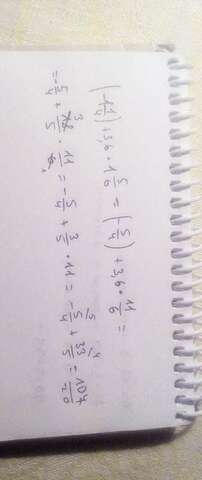 (-1 1/4) + 3,6 · 1 5/6 = (-5/4) + 3,6 · 11/6 =
= -5/4 + 18/5 · 11/6 = -5/4 + 3/5 · 11 = -5/4 + 33/5 = 107/20